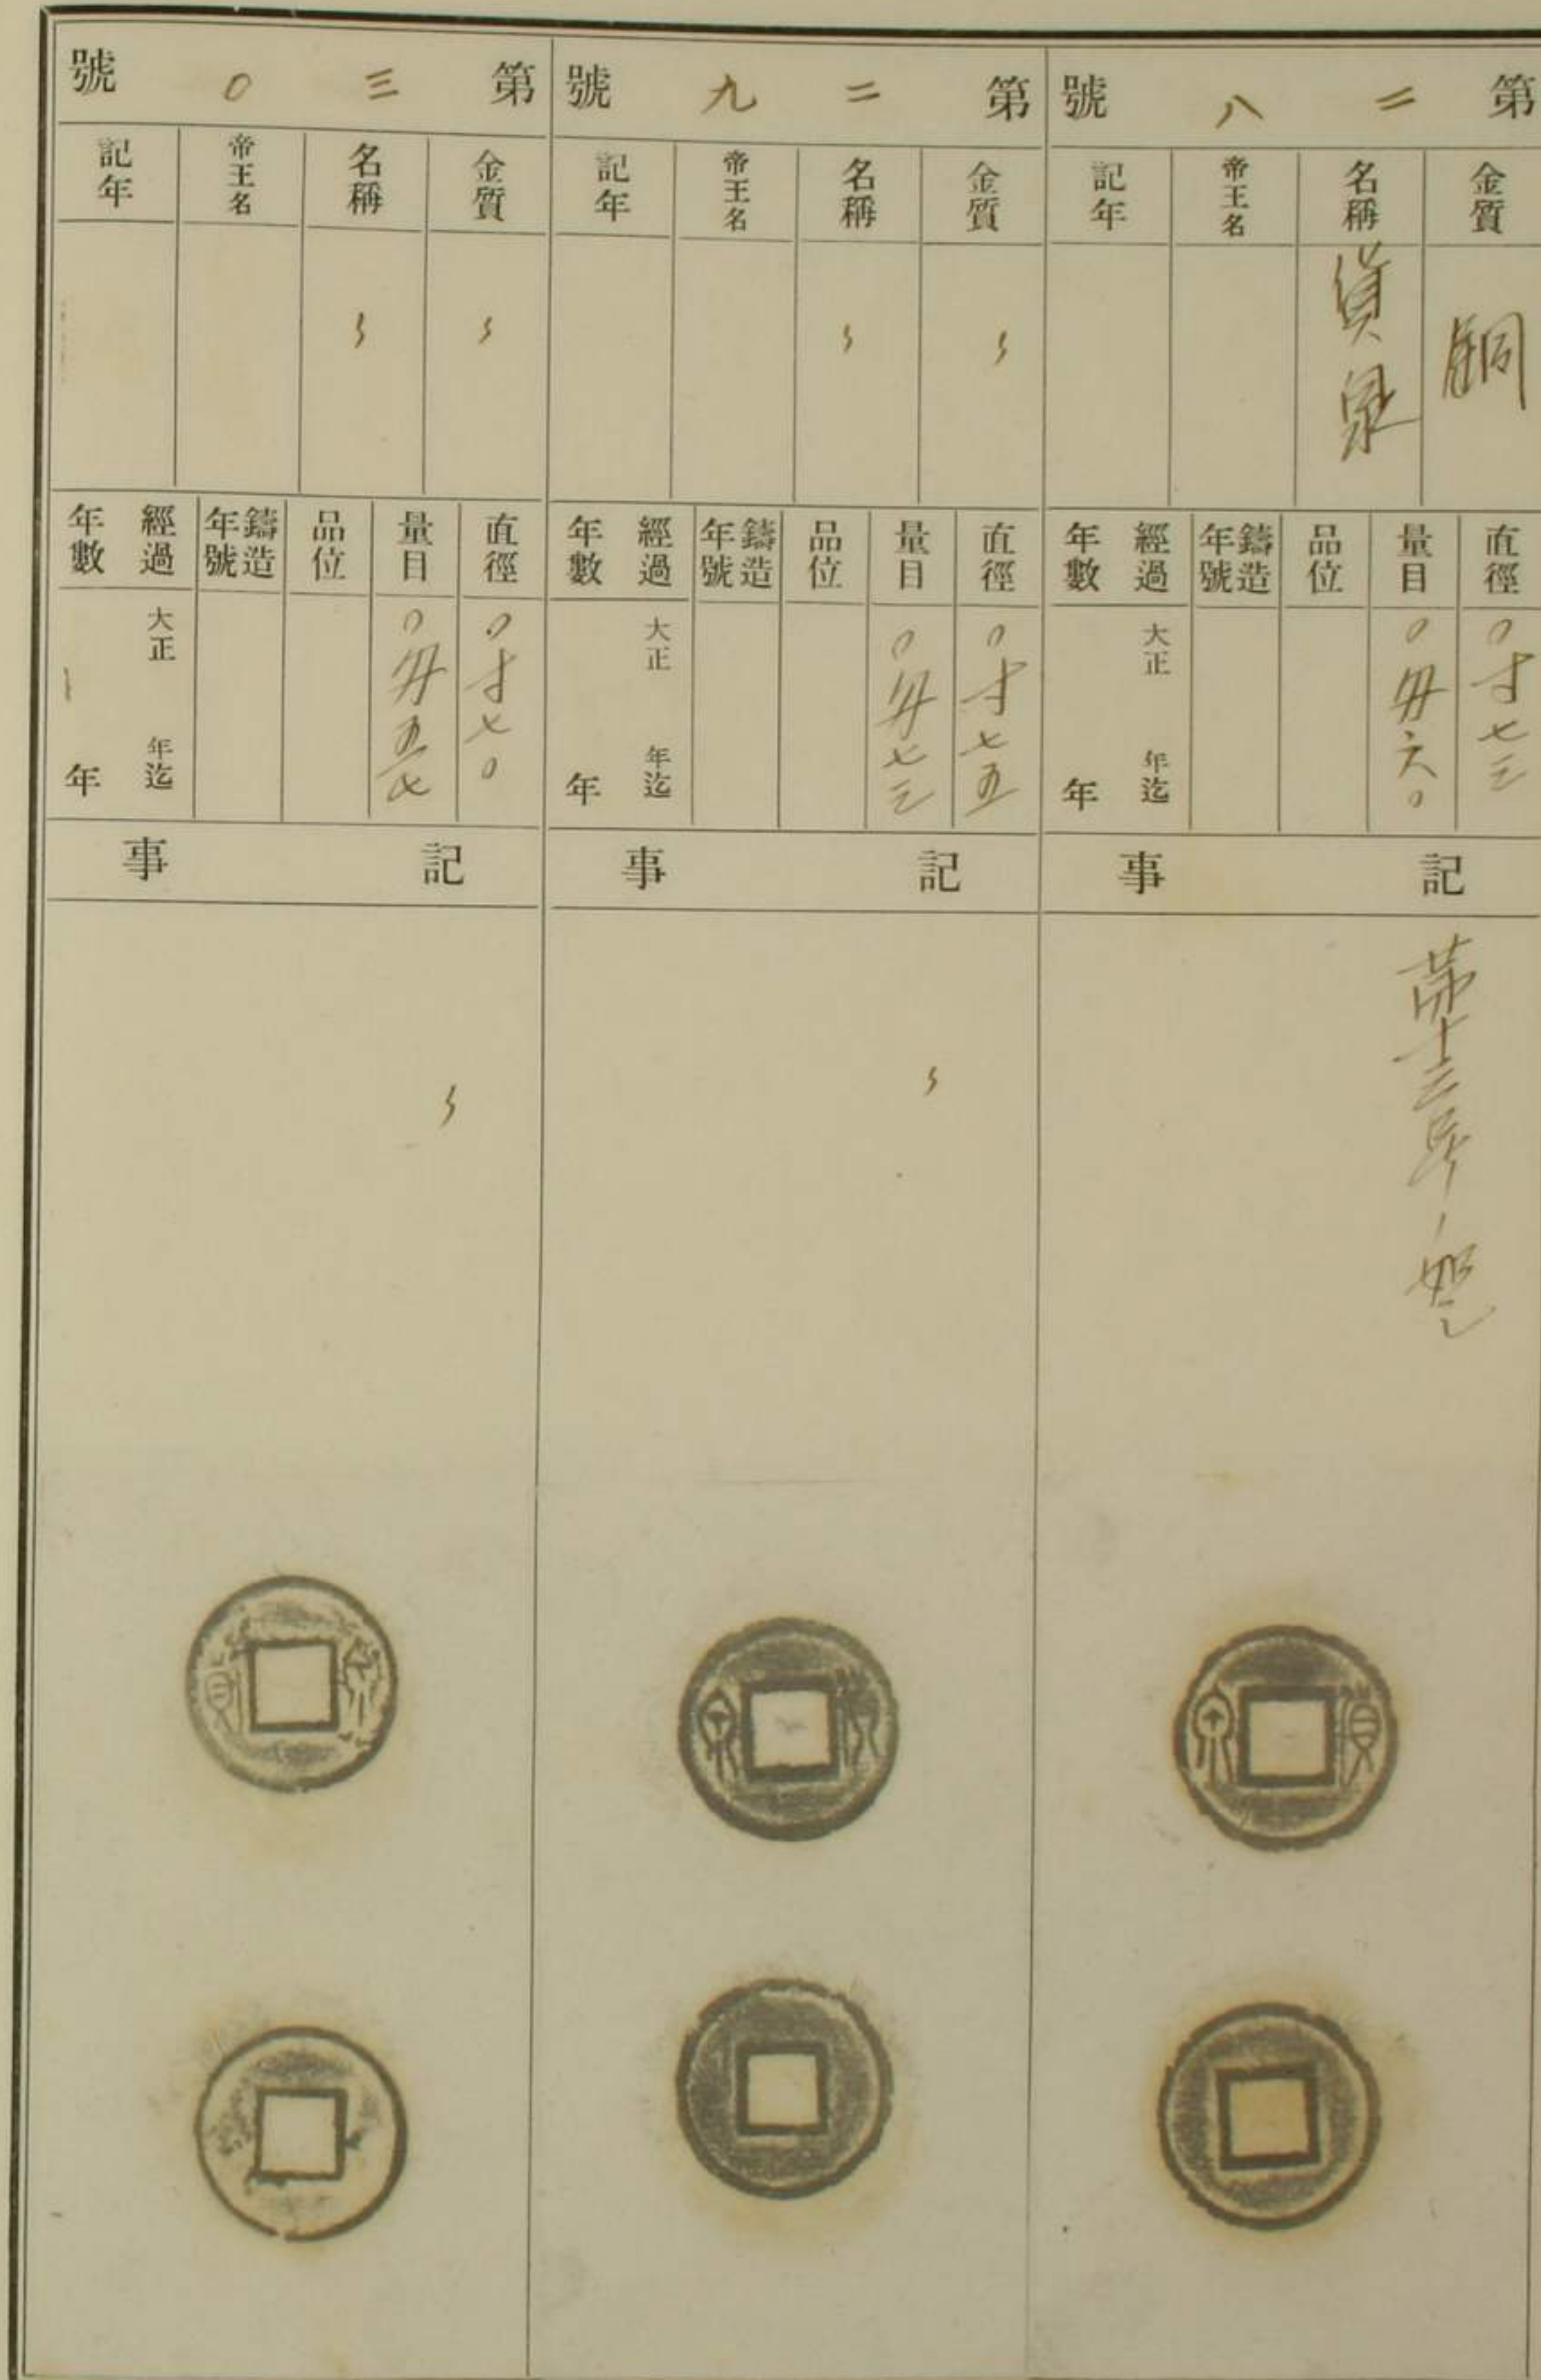 第二八號
金質
銅
名稱
貨泉
帝王名
記年
直徑
〇寸七三
量目
〇匁六〇
品位
鑄造年號
經過年數
大正 年迄
年
記事
第二九號
金質
〻
名稱
〻
帝王名
記年
直徑
〇寸七五
量目
〇匁七三
品位
鑄造年號
經過年數
大正 年迄
年
記事
〻
第三〇號
金質
〻
名稱
〻
帝王名
記年
直徑
〇寸七〇
量目
〇匁五
品位
鑄造年號
經過年數
大正 年迄
年
記事
〻
貨泉
貨泉